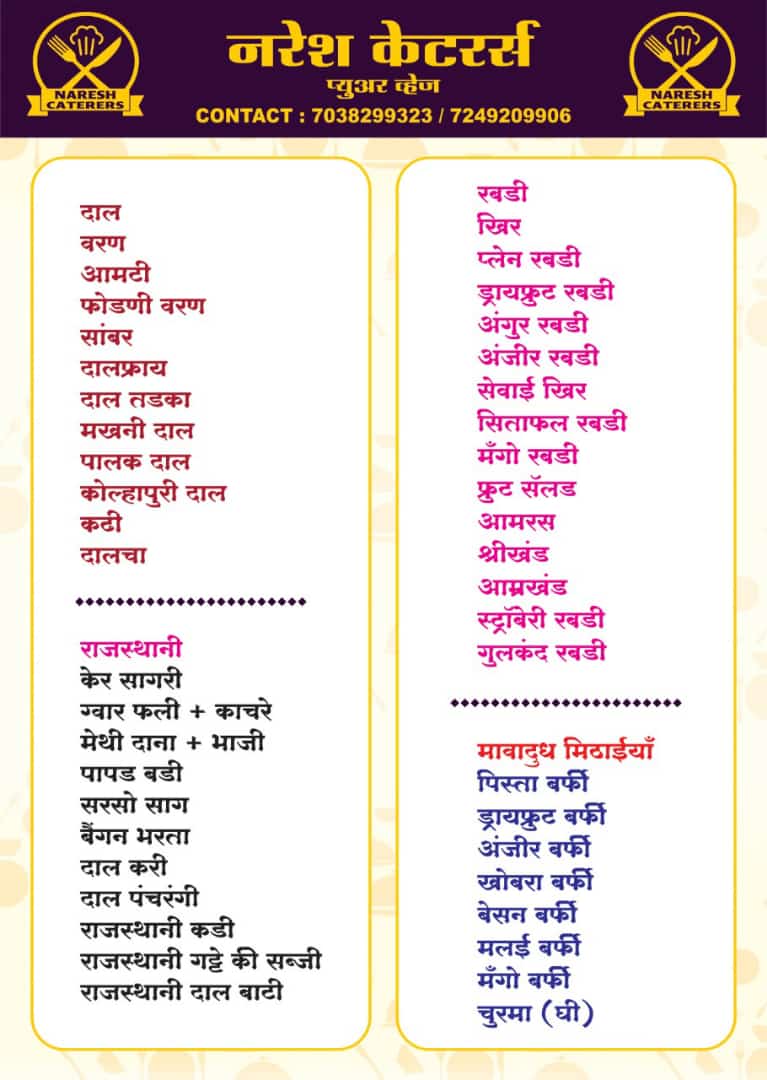 NARESH
CATERERS
नरेश केटरर्स
प्युअर व्हेज
CONTACT : 7038299323 / 7249209906
NARESH
CATERERS
दाल
वरण
आमटी
फोडणी वरण
सांबर
दालफ्राय
दाल तडका
मखनी दाल
पालक दाल
कोल्हापुरी दाल
कढी
दालचा
राजस्थानी
केर सागरी
ग्वार फली + काचरे
मेथी दाना + भाजी
पापड बडी
सरसो साग
बैंगन भरता
दाल करी
दाल पंचरंगी
राजस्थानी कडी
राजस्थानी गट्टे की सब्जी
राजस्थानी दाल बाटी
रबडी
खिर
प्लेन रबडी
ड्रायफ्रुट रबडी
अंगुर रबडी
अंजीर रबडी
सेवाई खिर
सिताफल रबडी
मँगो रबडी
फ्रुट सॅलड
आमरस
श्रीखंड
आम्रखंड
स्ट्रॉबेरी रबडी
गुलकंद रबडी
मावादुध मिठाईयाँ
पिस्ता बर्फी
ड्रायफ्रुट बर्फी
अंजीर बर्फी
खोबरा बर्फी
बेसन बर्फी
मलई बर्फी
मँगो बर्फी
चुरमा (घी)